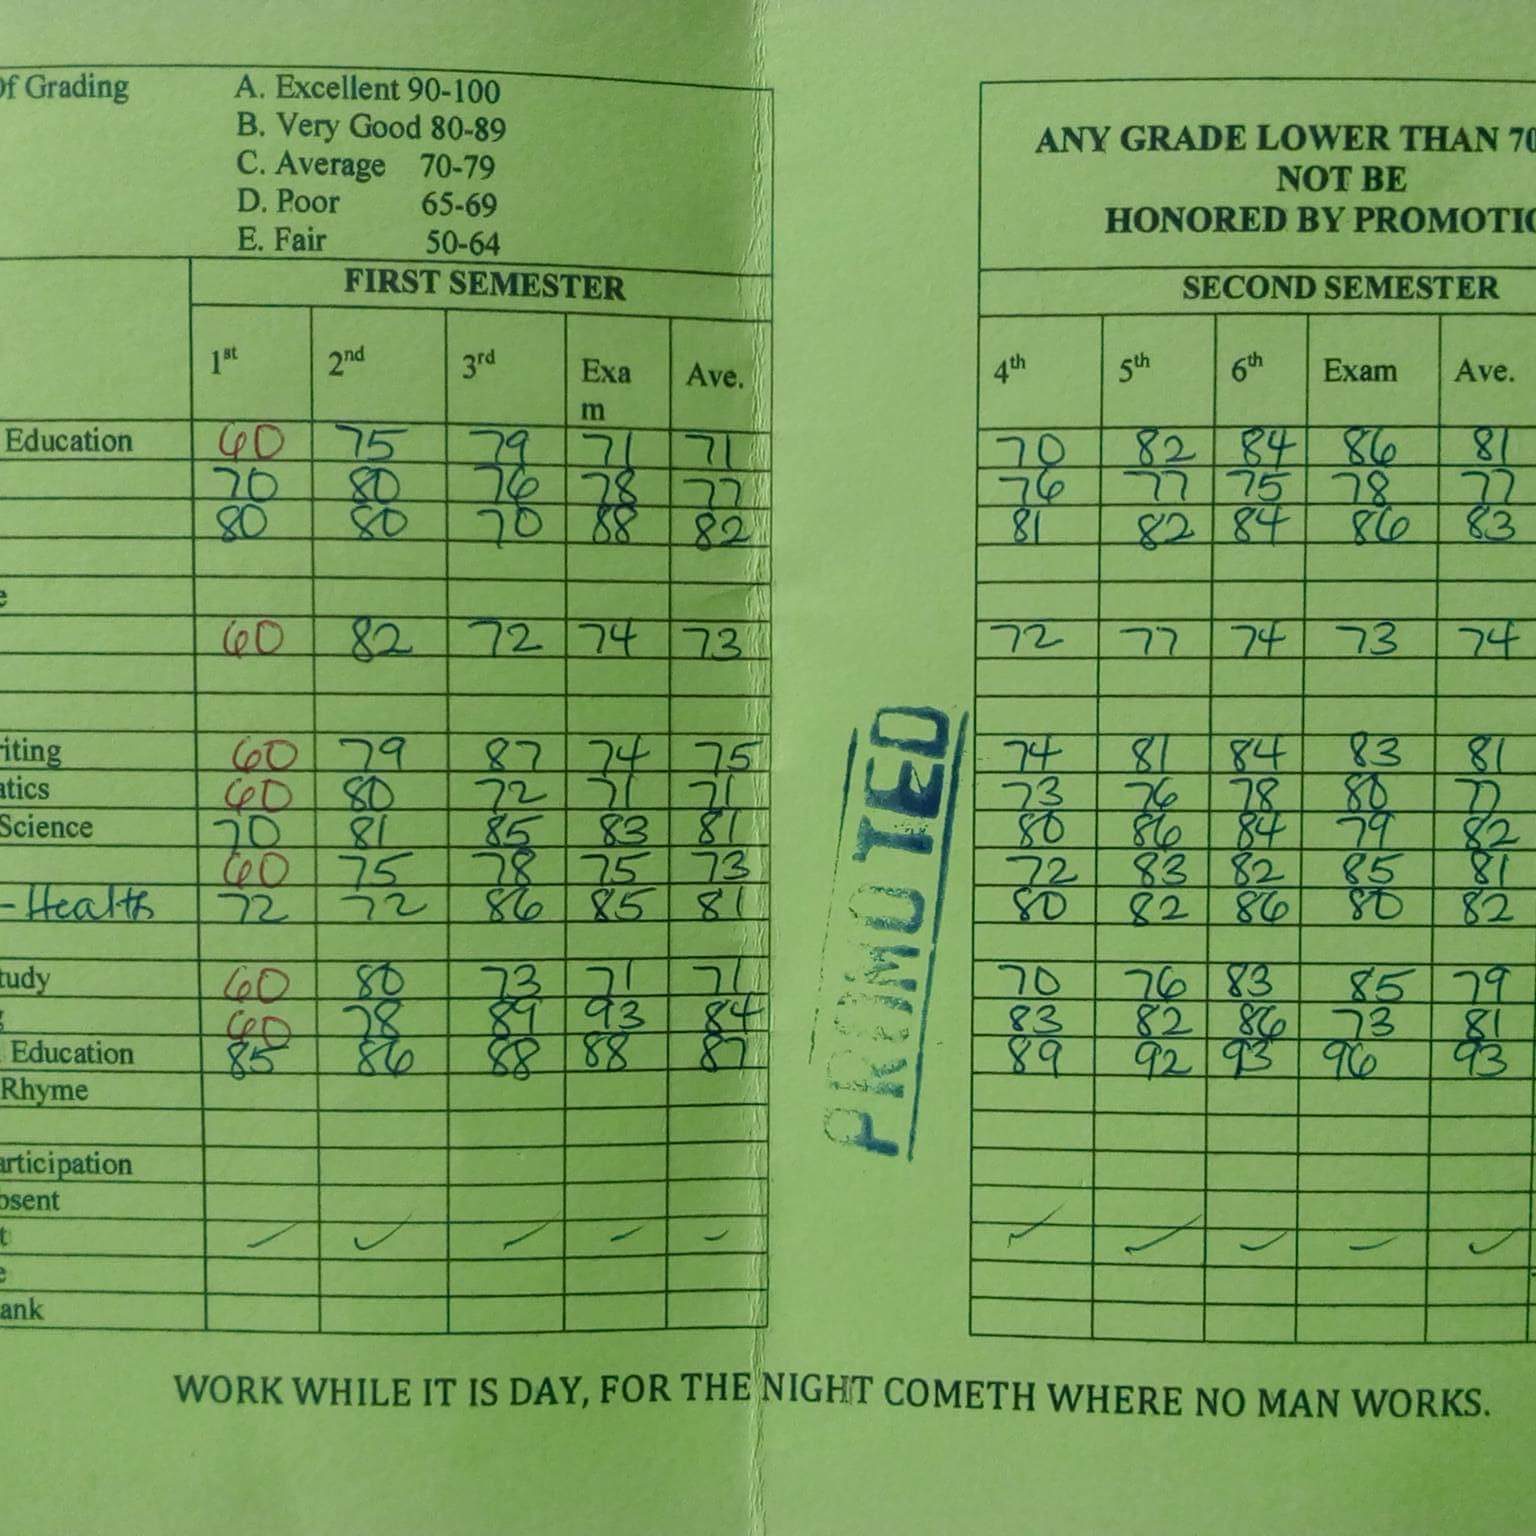 Of Grading A. Excellent 90-100
B. Very Good 80-89
C. Average 70-79
D. Poor 65-69
E. Fair 50-64
ANY GRADE LOWER THAN 70
NOT BE
HONORED BY PROMOTIO
FIRST SEMESTER SECOND SEMESTER
1st 2nd 3rd Exa m Ave. 4th 5th 6th Exam Ave.
Education 60 75 79 71 71 70 82 84 86 81
70 80 76 78 77 76 77 75 78 77
80 80 70 88 82 81 82 84 86 83
e
60 82 72 74 73 72 77 74 73 74
riting 60 79 87 74 75 74 81 84 83 81
atics 60 80 72 71 71 73 76 78 80 77
Science 70 81 85 83 81 80 86 84 79 82
60 75 78 75 73 72 83 82 85 81
- Health 72 72 86 85 81 80 82 86 80 82
tudy 60 80 73 71 71 70 76 83 85 79
g 60 78 89 93 84 83 82 86 73 81
Education 85 86 88 88 87 89 92 93 96 93
Rhyme
articipation
bsent
t
e
ank
PROMOTED
WORK WHILE IT IS DAY, FOR THE NIGHT COMETH WHERE NO MAN WORKS.